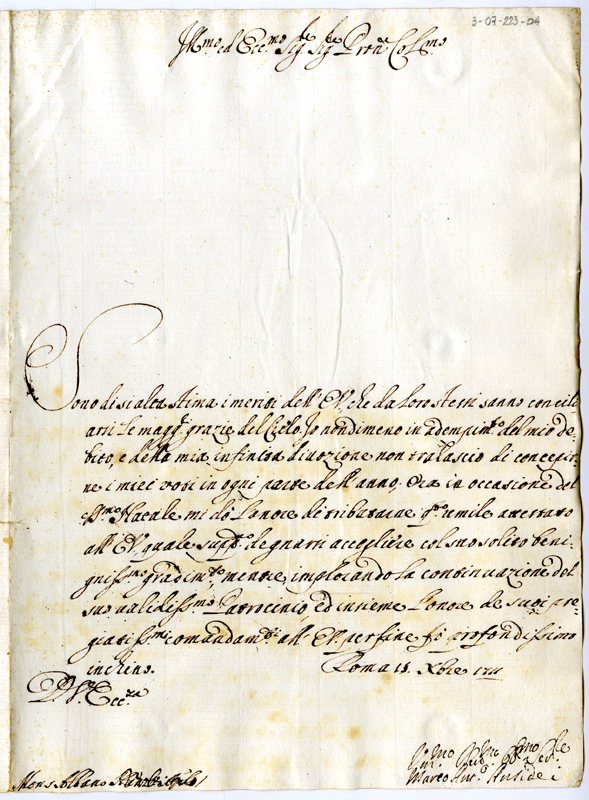 3-07-223-04
Ill.mo ed Ecc.mo Sig.re Sig.re Pron.e Col.mo
Sono di sì alta stima i meriti dell'E.V. che da loro stessi sanno concili
arsi le magg.ri grazie del Cielo. Io nondimeno in adempim.to del mio de
bito, e della mia infinita divozione non tralascio di concepir
ne i miei voti in ogni parte dell'anno. Ora in occasione del
S.mo Natale mi dò l'onore di tributarne q.to umile attestato
all'E.V. quale supp.co degnarsi accoglierle col suo solito beni-
gniss.mo gradim.to mentre implorando la continuazione del
suo validiss.mo Patrocinio ed insieme l'onore de suoi pre
giatiss.mi comandam.ti all'E.V. per fine fò profondissimo
inchino. Roma 15. Xbre 1711
D.V. Ecc.za
Mons. Albano
Marco Ant.o Ansidei